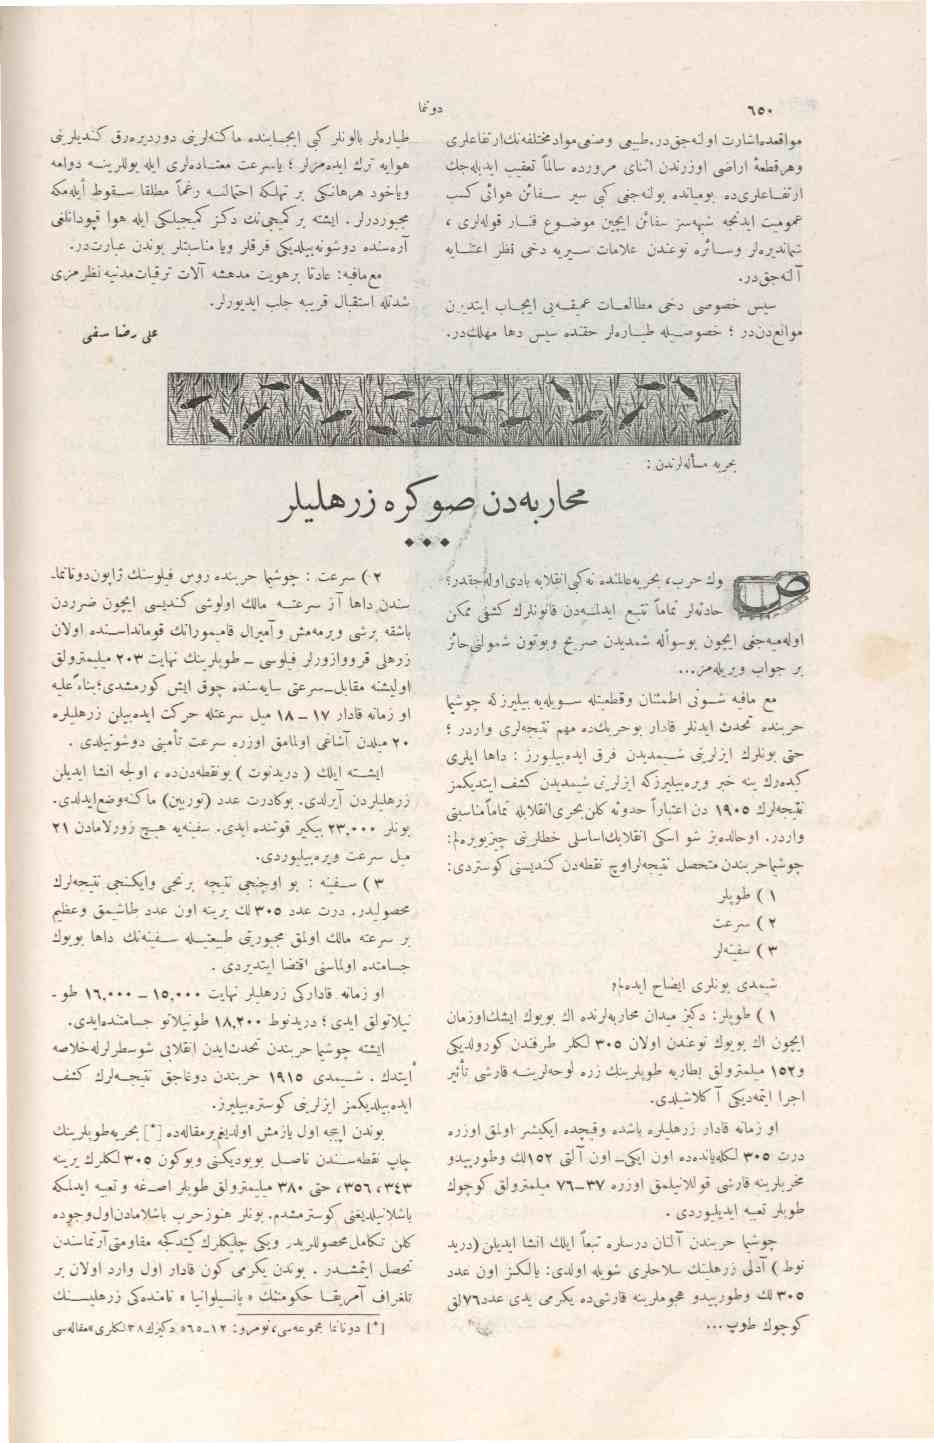 ٦٥٠
دوننما
مواقعده اشارت اولنه جق در. طبیعی وصنعی مواد مختلفه نك ارتفاعلری
وهر قطعهٔ اراضی اوزرندن اثنای مرورده سالماً تعقیب ایدیله جك
ارتفاعلری ده بومیانده بولنه جغی کبی سیر سفائن هوائی کسب
عمومیت ایدنجه شبهه سز سفائن ایچین موضوع فنار قوله لری ،
شماندیره لر وسائره نوعندن علامات سیریه دخی نظر اعتنایه
آلنه جق در.
سیس خصوصی دخی مطالعات عمیقه یی ایجاب ایتدیرن
موانع دن در ؛ خصوصیله طیاره لر حقنده سیس دها مهلك در.
طیاره لر بالونلر کبی ایجابنده ماکنه لرینی دوردیره رق کندیلرینی
هوایه ترك ایده مزلر ؛ یاسرعت معتاده لری ایله یوللرینه دوامه
ویاخود هرهانکی بر تهلکه احتمالنه رغماً مطلقا سقوط ایله مکه
مجبوردرلر. ایشته بر کمیجی نك دکز کمیجیلکی ایله هوا قپودانلغی
آره سنده دوشونه بیلدیکی فرقلر ویا مناسبتلر بوندن عبارت در.
مع مافیه : عادتا بر هویت مدهشه آلات ترقیات مدنیه نظرمزی
شدتله استقبال قریبه جلب ایدیورلر.
علی رضا سیفی
بحریه مسأله لرندن :
محاربه دن صوکره زرهلیلر
صوك حرب، بحریه عالمنده نه کبی انقلابه بادی اوله جقدر؟
حادثه لر تماماً تتبع ایدلمه دن قانونلرك کشفی ممکن
اوله میه جغی ایچون بوسؤاله شمدیدن صریح وبوتون شمولنی حائز
بر جواب ویریله مز...
مع مافیه شونی اطمئنان وقطعیتله سویله یه بیلیرز که چوشیما
حربنده تحدث ایدنلر قادار بوحربك ده مهم نتیجه لری واردر ؛
حتی بونلرك ایزلرینی شیمدیدن فرق ایده بیلیورز : داها ایلری
کیده رك ینه خبر ویره بیلیرزکه ایزلرینی شیمدیدن کشف ایتدیکمز
نتیجه لرك ١٩٠٥ دن اعتباراً حدوثه کلن بحری انقلابله تماماً مناسبتی
واردر. اوحالده بز شو اسکی انقلابك اساسلی خطلرینی چیزیویره لم:
چوشیما حربندن متحصل نتیجه لر اوچ نقطه دن کندیسنی کوستردی:
١ ) طوپلر
٢ ) سرعت
٣ ) سفینه لر
شیمدی بونلری ایضاح ایده لم؛
١ ) طوپلر: دکیز میدان محاربه لرنده اك بویوك ایشك اوزمان
ایچون اك بویوك نوعندن اولان ٣٠٥ لکلر طرفندن کورولدیکی
و١٥٢ میلمترولق بطاریه طوپلرینك زره لوحه لرینه قارشی تأثیر
اجرا ایتمه دیکی آکلاشیلدی.
او زمانه قادار زرهلیلره باشده وقیچده ایکیشر اولمق اوزره
درت ٣٠٥ لكله یانده ده اون ایکی ـ اون آلتی ١٥٢لك وطورپیدو
مخربلرینه قارشی قوللانیلمق اوزره ٣٧ـ٧٦ میلمترولق کوچوك
طوپلر تعبیه ایدیلیوردی .
چوشیما حربندن آلنان درسلره تبعاً ایلك انشا ایدیلن (درید
نوط ) آدلی زرهلینك سلاحلری شویله اولدی: یالکز اون عدد
٣٠٥ لك وطورپیدو هجوملرینه قارشی ده یکرمی یدی عدد ٧٦لق
کوچوك طوپ ...
٢ ) سرعت : چوشیما حربنده روس فیلوسنك ژاپون دونانما-
سندن داها آز سرعته مالك اولوشی کندیسی ایچون ضرردن
باشقه برشی ویرمه مش وآمیرال قامیمورانك قومانداسنده اولان
زرهلی قرووازورلر فیلوسی ـ طوپلرینك نهایت ٢٠٣ میلیمترولق
اولیشنه مقابل ـ سرعتی سایه سنده چوق ایش کورمشدی؛ بناءً علیه
او زمانه قادار ١٧ ـ ١٨ میل سرعتله حرکت ایده بیلن زرهلیلره
٢٠ میلدن آشاغی اولمامق اوزره سرعت تأمینی دوشونیلدی .
ایشته ایلك ( دریدنوت ) بونقطه دن ده ، اولجه انشا ایدیلن
زرهلیلردن آیرلدی. بوکادرت عدد (توربین) ماکنه وضع ایدلدی.
بونلر ٢٣,٠٠٠ بیکیر قوتنده ایدی. سفینه یه هیچ زورلامادن ٢١
میل سرعت ویره بیلیوردی.
٣ ) سفینه : بو اوچنجی نتیجه برنجی وایکنجی نتیجه لرك
محصولیدر. درت عدد ٣٠٥ لك یرینه اون عدد طاشیمق وعظیم
بر سرعته مالك اولمق مجبوریتی طبیعتیله سفینه نك داها بویوك
جسامتده اولماسنی اقتضا ایتدیردی .
او زمانه قادارکی زرهلیلر نهایت ١٥,٠٠٠ ـ ١٦,٠٠٠ طو-
نیلاتولق ایدی ؛ دریدنوط ١٨,٢٠٠ طونیلاتو جسامتنده ایدی.
ایشته چوشیما حربندن تحدث ایدن انقلابی شوسطرلرله خلاصه
ایتدك . شیمدی ١٩١٥ حربندن دوغاجق نتیجه لرك کشف
ایده بیلدیکمز ایزلرینی کوستره بیلیرز.
بوندن اییجه اول یازمش اولدیغم بر مقاله ده [*] بحریه طوپلرینك
چاپ نقطه سندن ناصل بویودیکنی وبوکون ٣٠٥ لکلرك یرینه
٣٤٣، ٣٥٦، حتی ٣٨٠ میلیمترولق طوپلر اصنه وتعبیه ایدلمکه
باشلانیلدیغنی کوسترمشدم. بونلر هنوز حرب باشلامادن اول وجوده
کلن تکامل محصوللریدر ویکی چلیکلرك کیتدکجه مقاومتی آرتماسندن
تحصل ایتمشدر . بوندن یکرمی کون قادار اول وارد اولان بر
تلغراف آمریقا حکومتنك « پانسیلوانیا » نامنده کی زرهلیسنك
[*] دونانما مجموعه سی، نومرو: ١٢ـ٥٦٥ دکیزك ٣٨ لکلری «مقاله سی